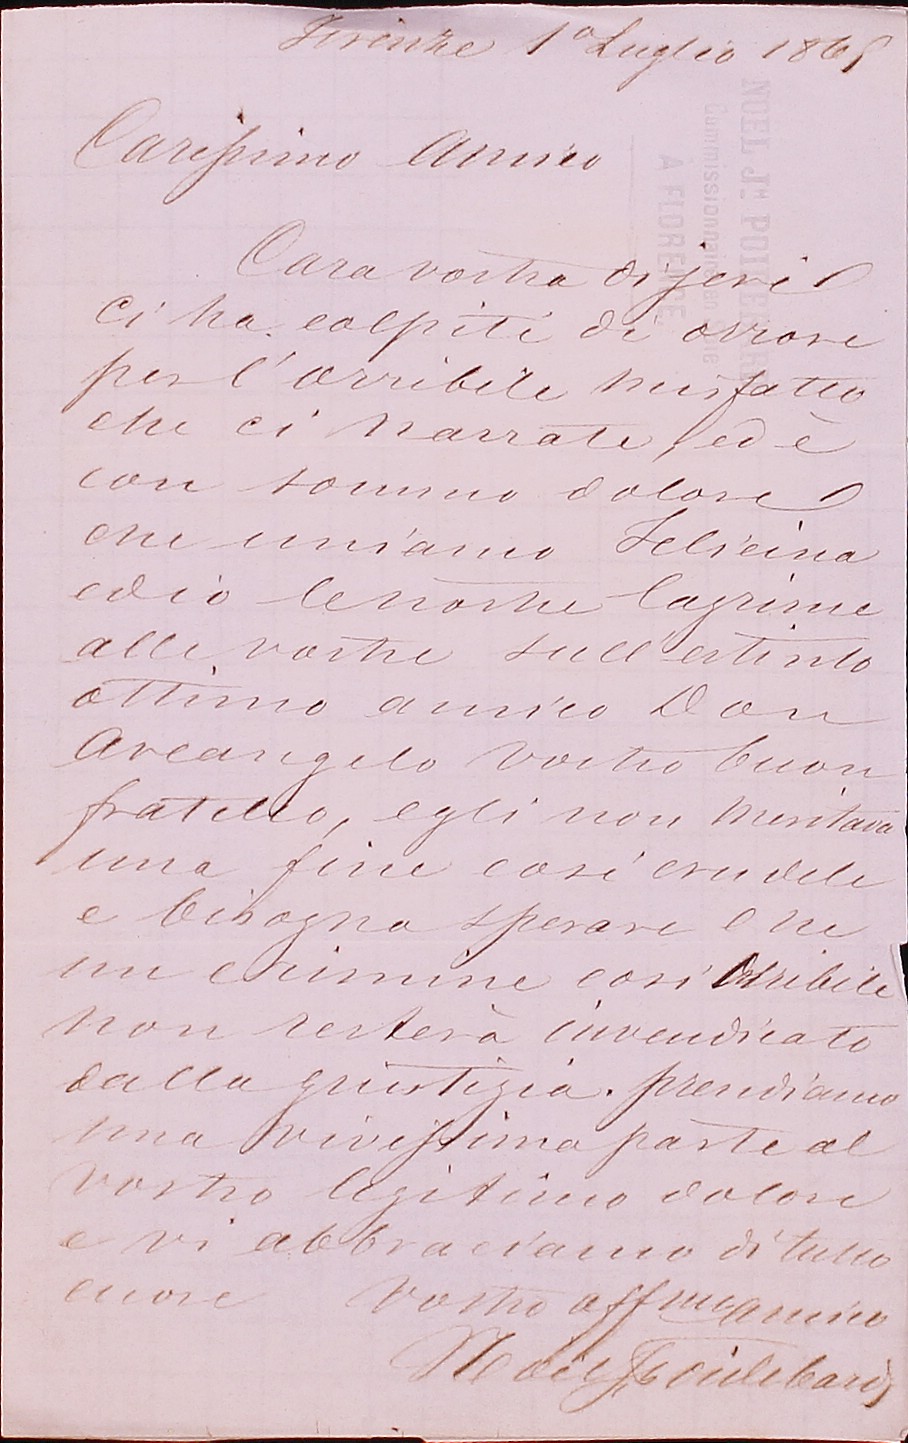 Firenze 1º Luglio 1865
Carissimo Amico
Cara vostra di jeri
ci ha colpiti di orrore
per l'orribile misfatto
che ci narrate, ed è
con sommo dolore
che uniamo Felicina
ed io le nostre lagrime
alle vostre sull'estinto
ottimo amico Don
Arcangelo vostro buon
fratello, egli non meritava
una fine così crudele
e bisogna sperare che
un crimine così Orribile
non resterà invendicato
dalla giustizia. prendiamo
una vivissima parte al
vostro legitimo dolore
e vi abbraciamo di tutto
cuore Vostro affmo amico
NOEL Jne
Commissionnaire en
À FLORENCE